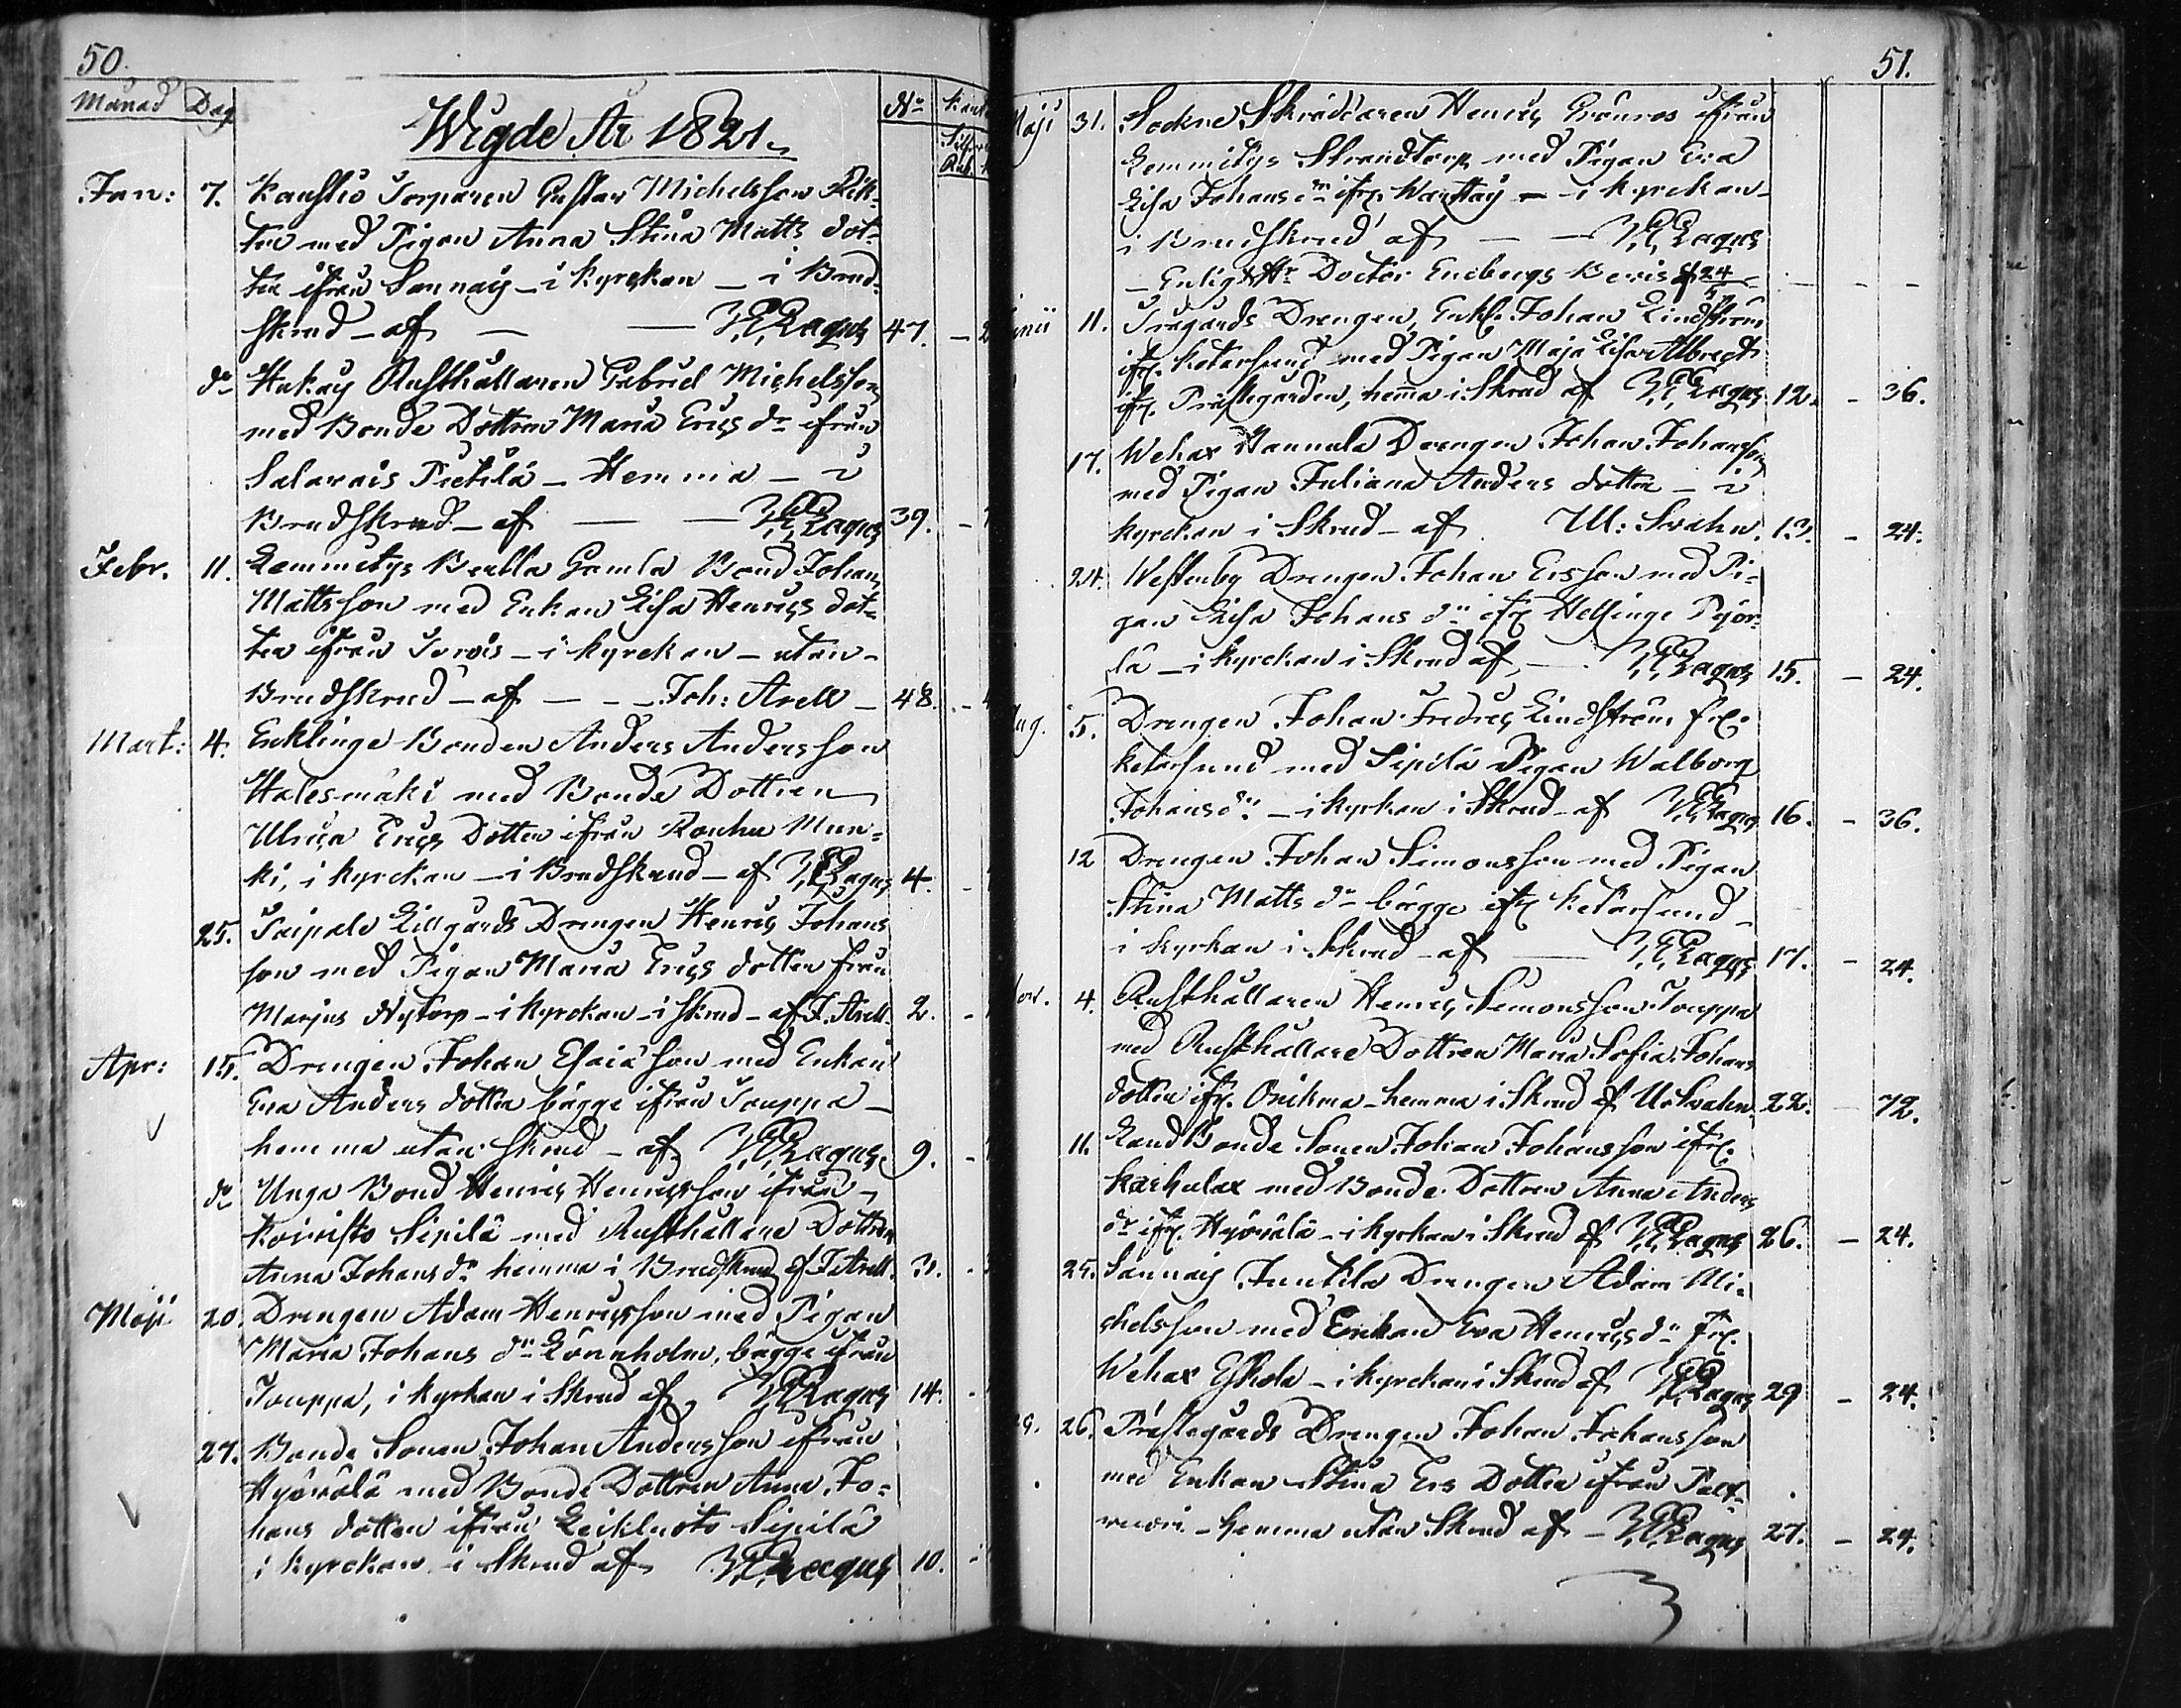 50.
Månad Dag
Wigde År 1821.
No
Jan: 7. Torparen Gustav Michelsson
med Pigan Anna Stina Matts dot-
ter ifrån Sannais - i kyrckan - i Brud-
skrud - af - - Ragus 47.
do Rusthållaren Gabriel Michelsson
med Bonde Dottren Maria Erics dr ifrån
Salavais Pietilä - Hemma - i
Brudskrud - af - - Ragus 39.
Febr. 11. Lemmitys Gamla Bond Johan
Mattsson med Enkan Lisa Henrics dot-
ter ifrån - i kyrckan - utan
Brudskrud - af - - Joh: Arell - 48.
Mart: 4. Bonden Anders Andersson
med Bonde Dottren
Ulrica Erics Dotter ifrån Mun-
ki, i kyrckan - i Brudskrud - af Ragus 4.
25. Taipale Lillgårds Drengen Henric Johans
son med Pigan Maria Erics dotter från
Nytorp - i kyrckan - i skrud - af J. Arell. 2.
Apr: 15. Drengen Johan Esaiäson med Enkan
Eva Anders dotter bägge ifrån Jouppa -
hemma utan skrud - af Ragus. 9.
do Unga Bond Henric Henricsson ifrån
Koivisto Sipilä med Rusthållare Dottren
Anna Johans dr hemma i Brudskrud af J. Arell. 3.
Maji 20. Drengen Adam Henricsson med Pigan
Maria Johans dr Lönnholm, bägge ifrån
Jouppa, i kyrkan i Skrud af Ragus 14.
27. Bonde Sonen Johan Andersson ifrån
Hyövälä med Bonde Dottren Anna Jo-
hans dotter ifrån Sipilä
i kyrckan i Skrud af Ragus 10.
51.
Maji 31. Sockne Skräddaren Henric Grönros ifrån
Lemmitys Strandtorp med Pigan Eva
Lisa Johans dr ifr. - i kyrckan
i Brudskrud af - - Ragus
- Enligt Hr Doctor Enebergs Bevis af 24/5 -
Junii 11. Drengen, Enkl. Johan Lindström
ifr. Ketarsund med Pigan Maja Lisa Albregts
ifr. Prästegården, hemma i Skrud af Ragus 12. - 36.
17. Wehax Hannula Drengen Johan Johansson
med Pigan Juliana Anders dotter - i
kyrckan i Skrud - af U: Svahn. 13. - 24.
24. Westenby Drengen Johan Ersson med Pi-
gan Lisa Johans dr ifr. Helsinge
- i kyrckan i Skrud af - Ragus 15. - 24.
Aug. 5. Drengen Johan Fredric Lindström fr.
Ketarsund med Sipilä Pigan Walborg
Johans dr - i kyrkan i Skrud - af Ragus 16. - 36.
12 Drengen Johan Simonsson med Pigan
Stina Matts dr bägge ifr. Ketarsund -
i kyrkan i Skrud - af - Ragus 17. - 24.
4. Rusthållaren Henric Simonsson Jouppa
med Rusthållare Dottren Maria Sofia Johans
dotter ifr. Onikma - hemma i Skrud af U: Svahn 22. - 72.
11. Land Bonde Sonen Johan Johansson ifr.
Karhulax med Bonde Dottren Anna Anders
dr ifr. Hyövälä - i kyrkan i Skrud af Ragus 26. - 24.
25. Sannais Juutila Drengen Adam Mi-
chelsson med Enkan Eva Henrics dr fr.
Wehax Eskola - i kyrckan i Skrud af Ragus 29 - 24.
26. Prästegårds Drengen Johan Johansson
med Enkan Stina Ers Dotter ifrån
- hemma utan Skrud af - Ragus 27. - 24.